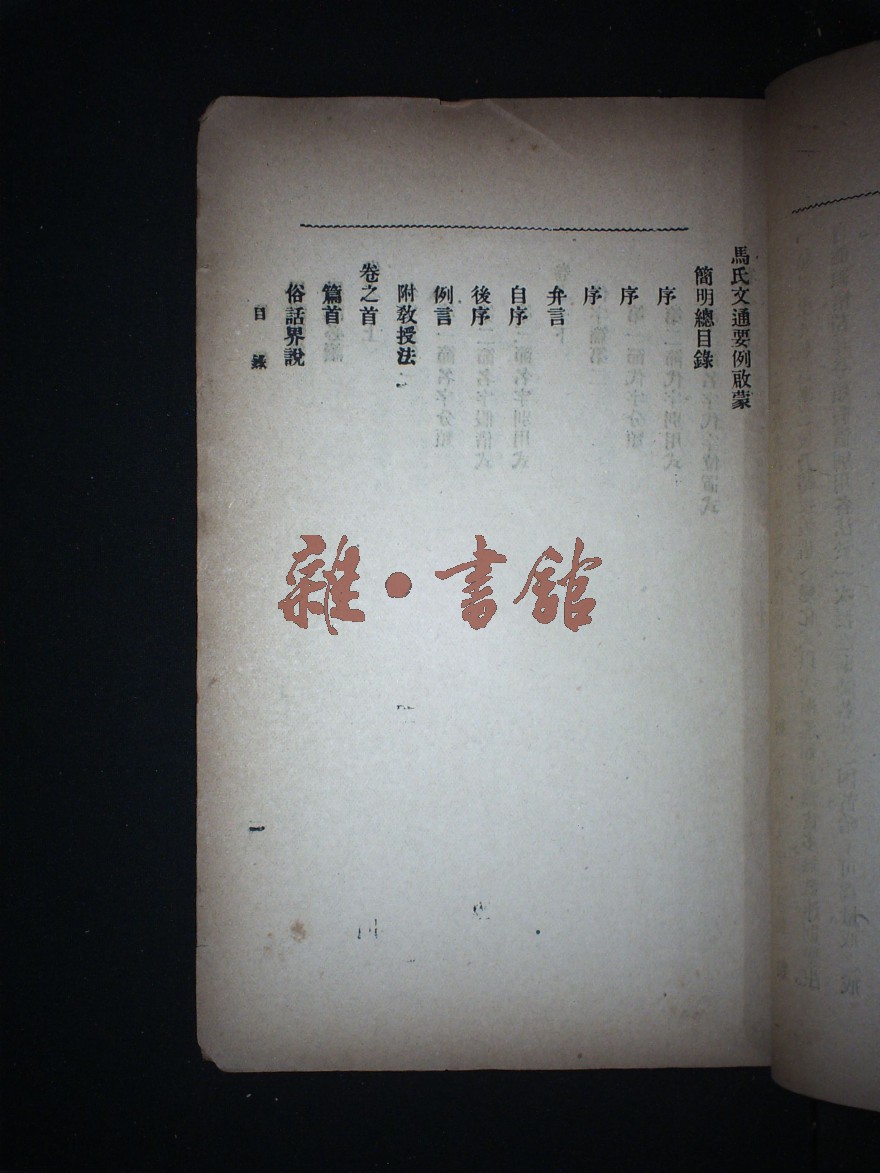 馬氏文通要例啟蒙
簡明總目錄
序
序
序
弁言
自序
後序
例言
附教授法
卷之首
篇首
俗話界說
目錄
一
雜·書館